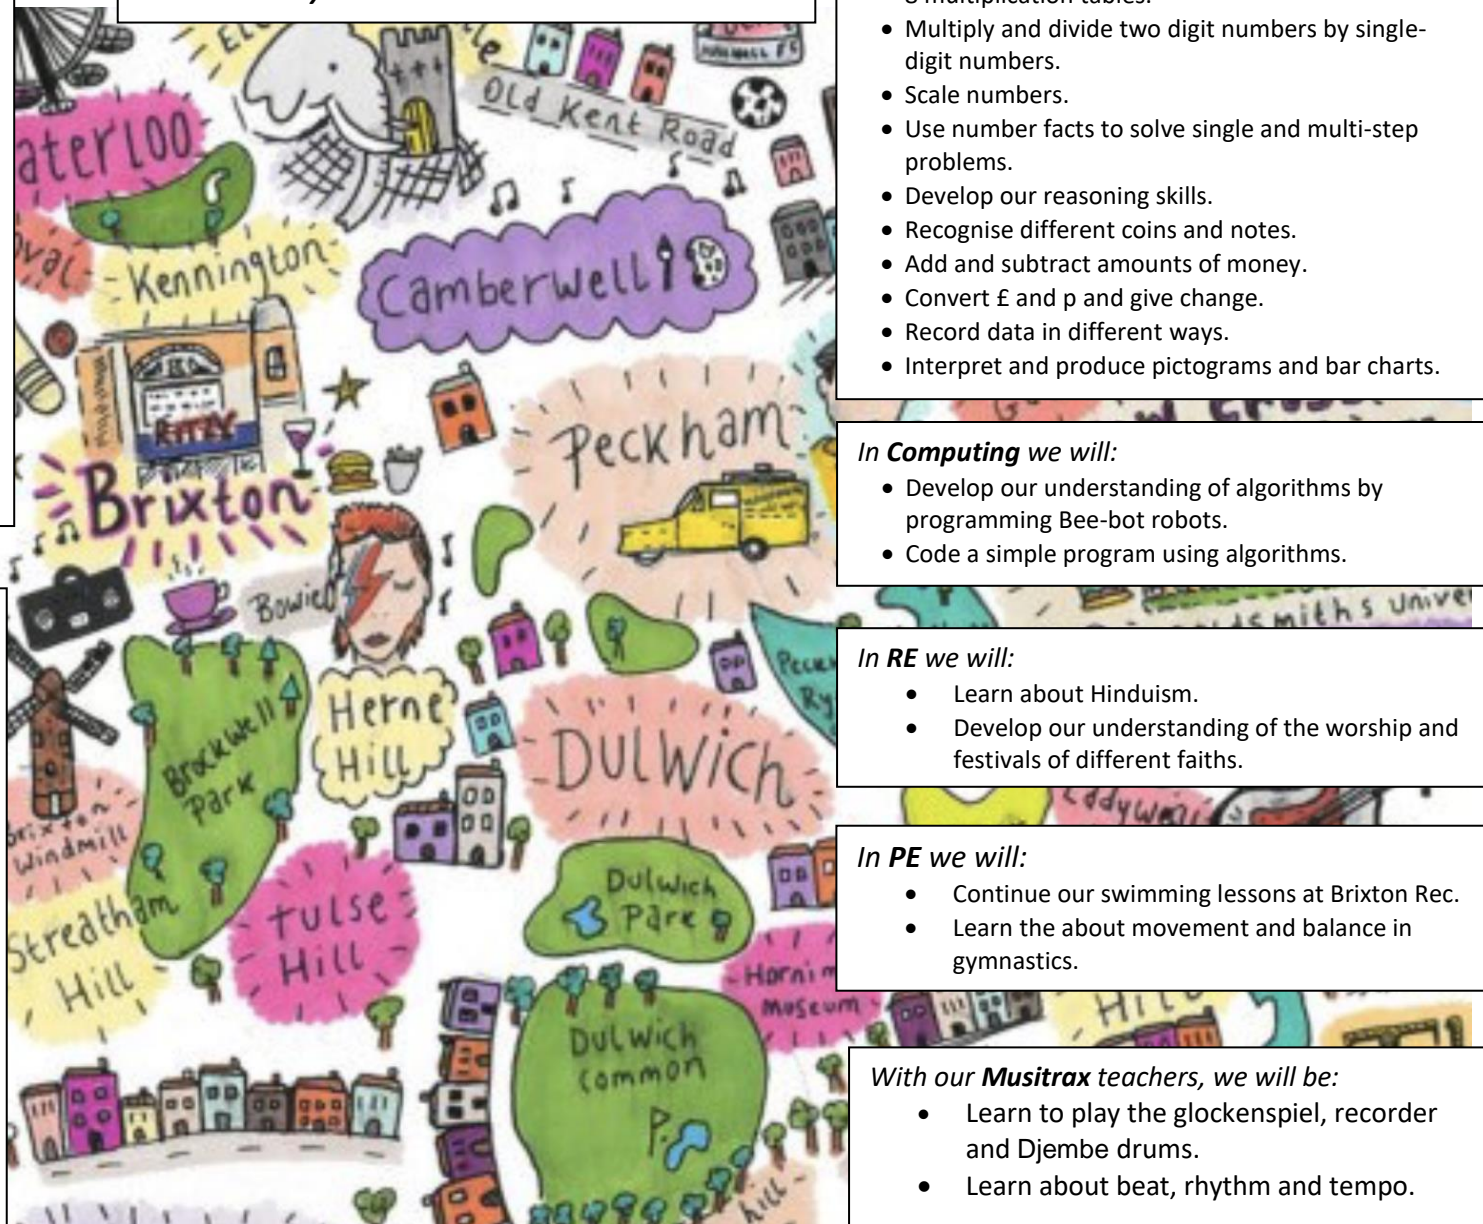 Old Kent Road
Kennington
Camberwell
RITZY
Brixton
Peckham
Bowie
Herne
Hill
Brockwell
Park
Dulwich
Windmill
Streatham
Hill
Tulse
Hill
Dulwich
Park
Museum
Dulwich
Common
P.
hill
multiplication tables.
• Multiply and divide two digit numbers by single-
digit numbers.
• Scale numbers.
• Use number facts to solve single and multi-step
problems.
• Develop our reasoning skills.
• Recognise different coins and notes.
• Add and subtract amounts of money.
• Convert £ and p and give change.
• Record data in different ways.
• Interpret and produce pictograms and bar charts.
In Computing we will:
• Develop our understanding of algorithms by
programming Bee-bot robots.
• Code a simple program using algorithms.
In RE we will:
• Learn about Hinduism.
• Develop our understanding of the worship and
festivals of different faiths.
Ladywell
In PE we will:
• Continue our swimming lessons at Brixton Rec.
• Learn the about movement and balance in
gymnastics.
With our Musitrax teachers, we will be:
• Learn to play the glockenspiel, recorder
and Djembe drums.
• Learn about beat, rhythm and tempo.